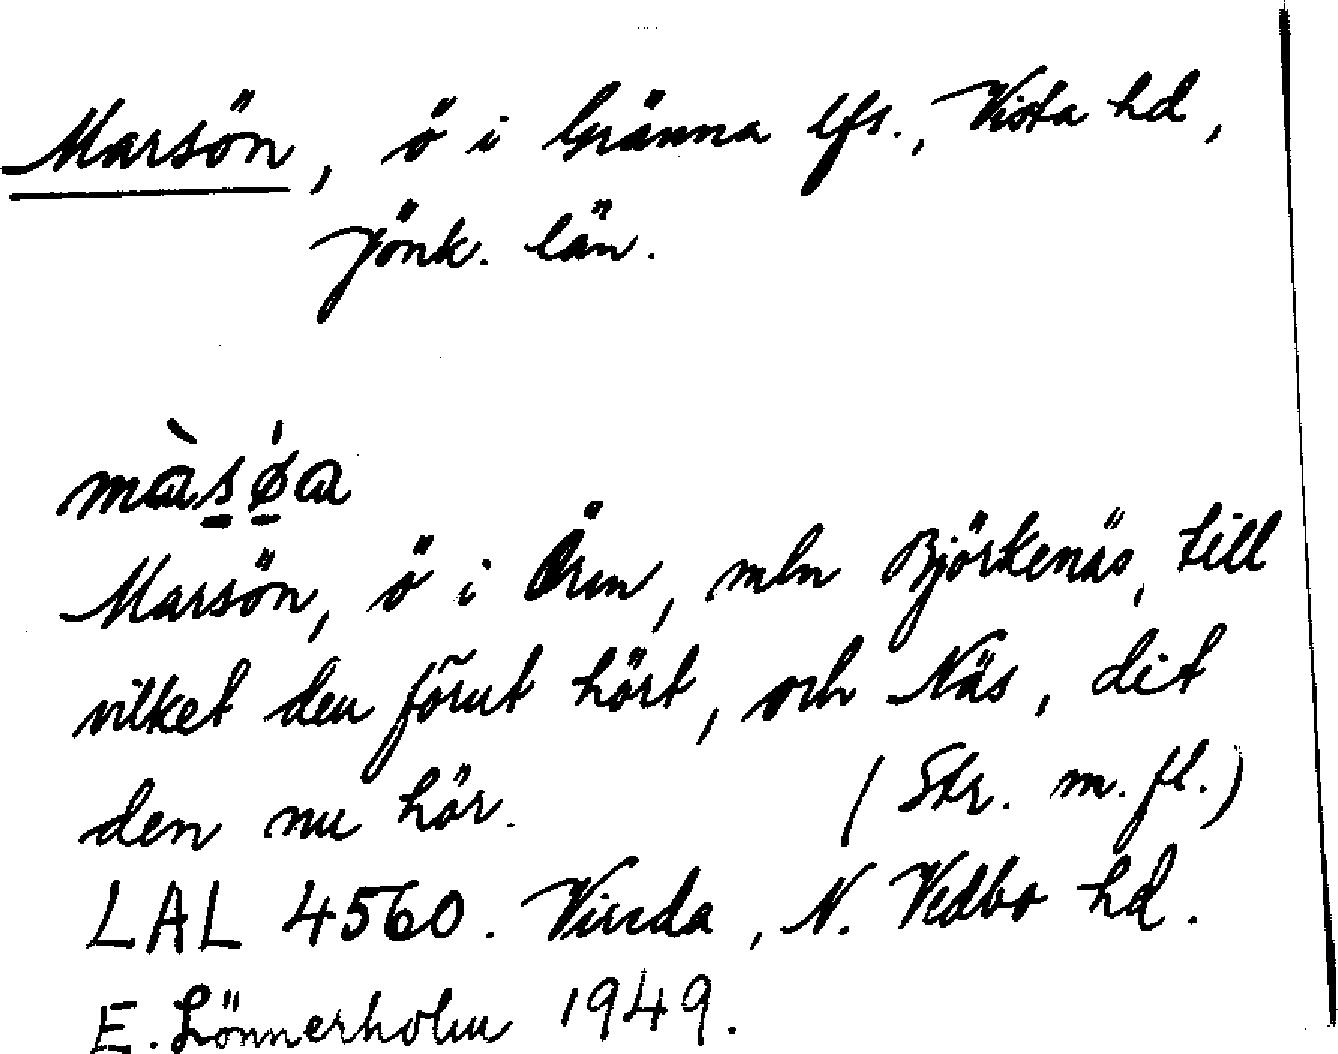 Marsön, ö i Gränna lfs., Vista hd,
Jönk. län.
mɑ̀s̠ǿ̠ɑ
Marsön, ö i Ören, mln Björkenäs, till
vilket den förut hört, och Näs, dit
den nu hör. (Skr. m. fl.)
LAL 4560. Vireda, N. Vedbo hd.
E. Lönnerholm 1949.